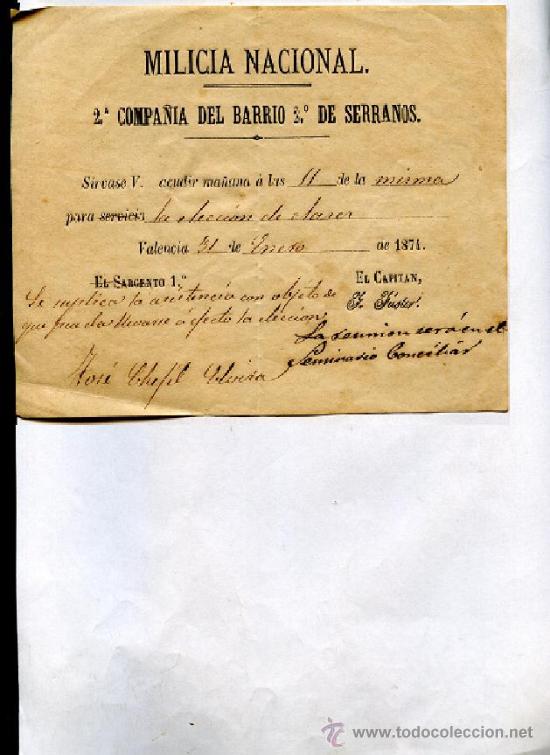 MILICIA NACIONAL.
2.ª COMPAÑIA DEL BARRIO 3.º DE SERRANOS.
Sírvase V. acudir mañana á las 11 de la misma
para servicio la elección de clases
Valencia 31 de Enero de 1871.
EL SARGENTO 1.º
EL CAPITAN,
Se suplica la asistencia con objeto de
que pueda llevarse á efecto la elección
F. Fuster.
La reunion será en el
Seminario Conciliar
José
todocoleccion
www.todocoleccion.net